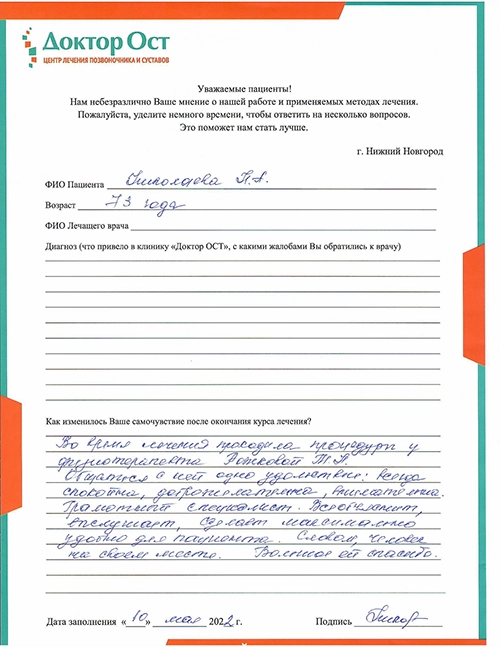 Доктор Ост
ЦЕНТР ЛЕЧЕНИЯ ПОЗВОНОЧНИКА И СУСТАВОВ
Уважаемые пациенты!
Нам небезразлично Ваше мнение о нашей работе и применяемых методах лечения.
Пожалуйста, уделите немного времени, чтобы ответить на несколько вопросов.
Это поможет нам стать лучше.
г. Нижний Новгород
ФИО Пациента Николаева П.А.
Возраст 73 года
ФИО Лечащего врача
Диагноз (что привело в клинику «Доктор ОСТ», с какими жалобами Вы обратились к врачу)
Как изменилось Ваше самочувствие после окончания курса лечения?
Во время лечения проходила процедуры у
физиотерапевта Рожковой Т.А.
Общаться с ней одно удовольствие: всегда
спокойна, доброжелательна, внимательна.
Грамотный специалист. Все объяснит,
выслушает, сделает максимально
удобно для пациента. Словом, человек
на своем месте. Большое ей спасибо.
Дата заполнения «10» мая 2022 г. Подпись